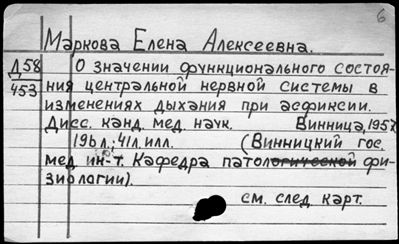 6
Маркова Елена Алексеевна.
Д58
453
О значении функционального состоя-
ния центральной нервной системы в
изменениях дыхания при асфиксии.
Дисс. канд. мед. наук. Винница, 1957
196 л.; 41 л. илл. (Винницкий гос.
мед ин-т. Кафедра патологической фи-
зиологии).
см. след карт.